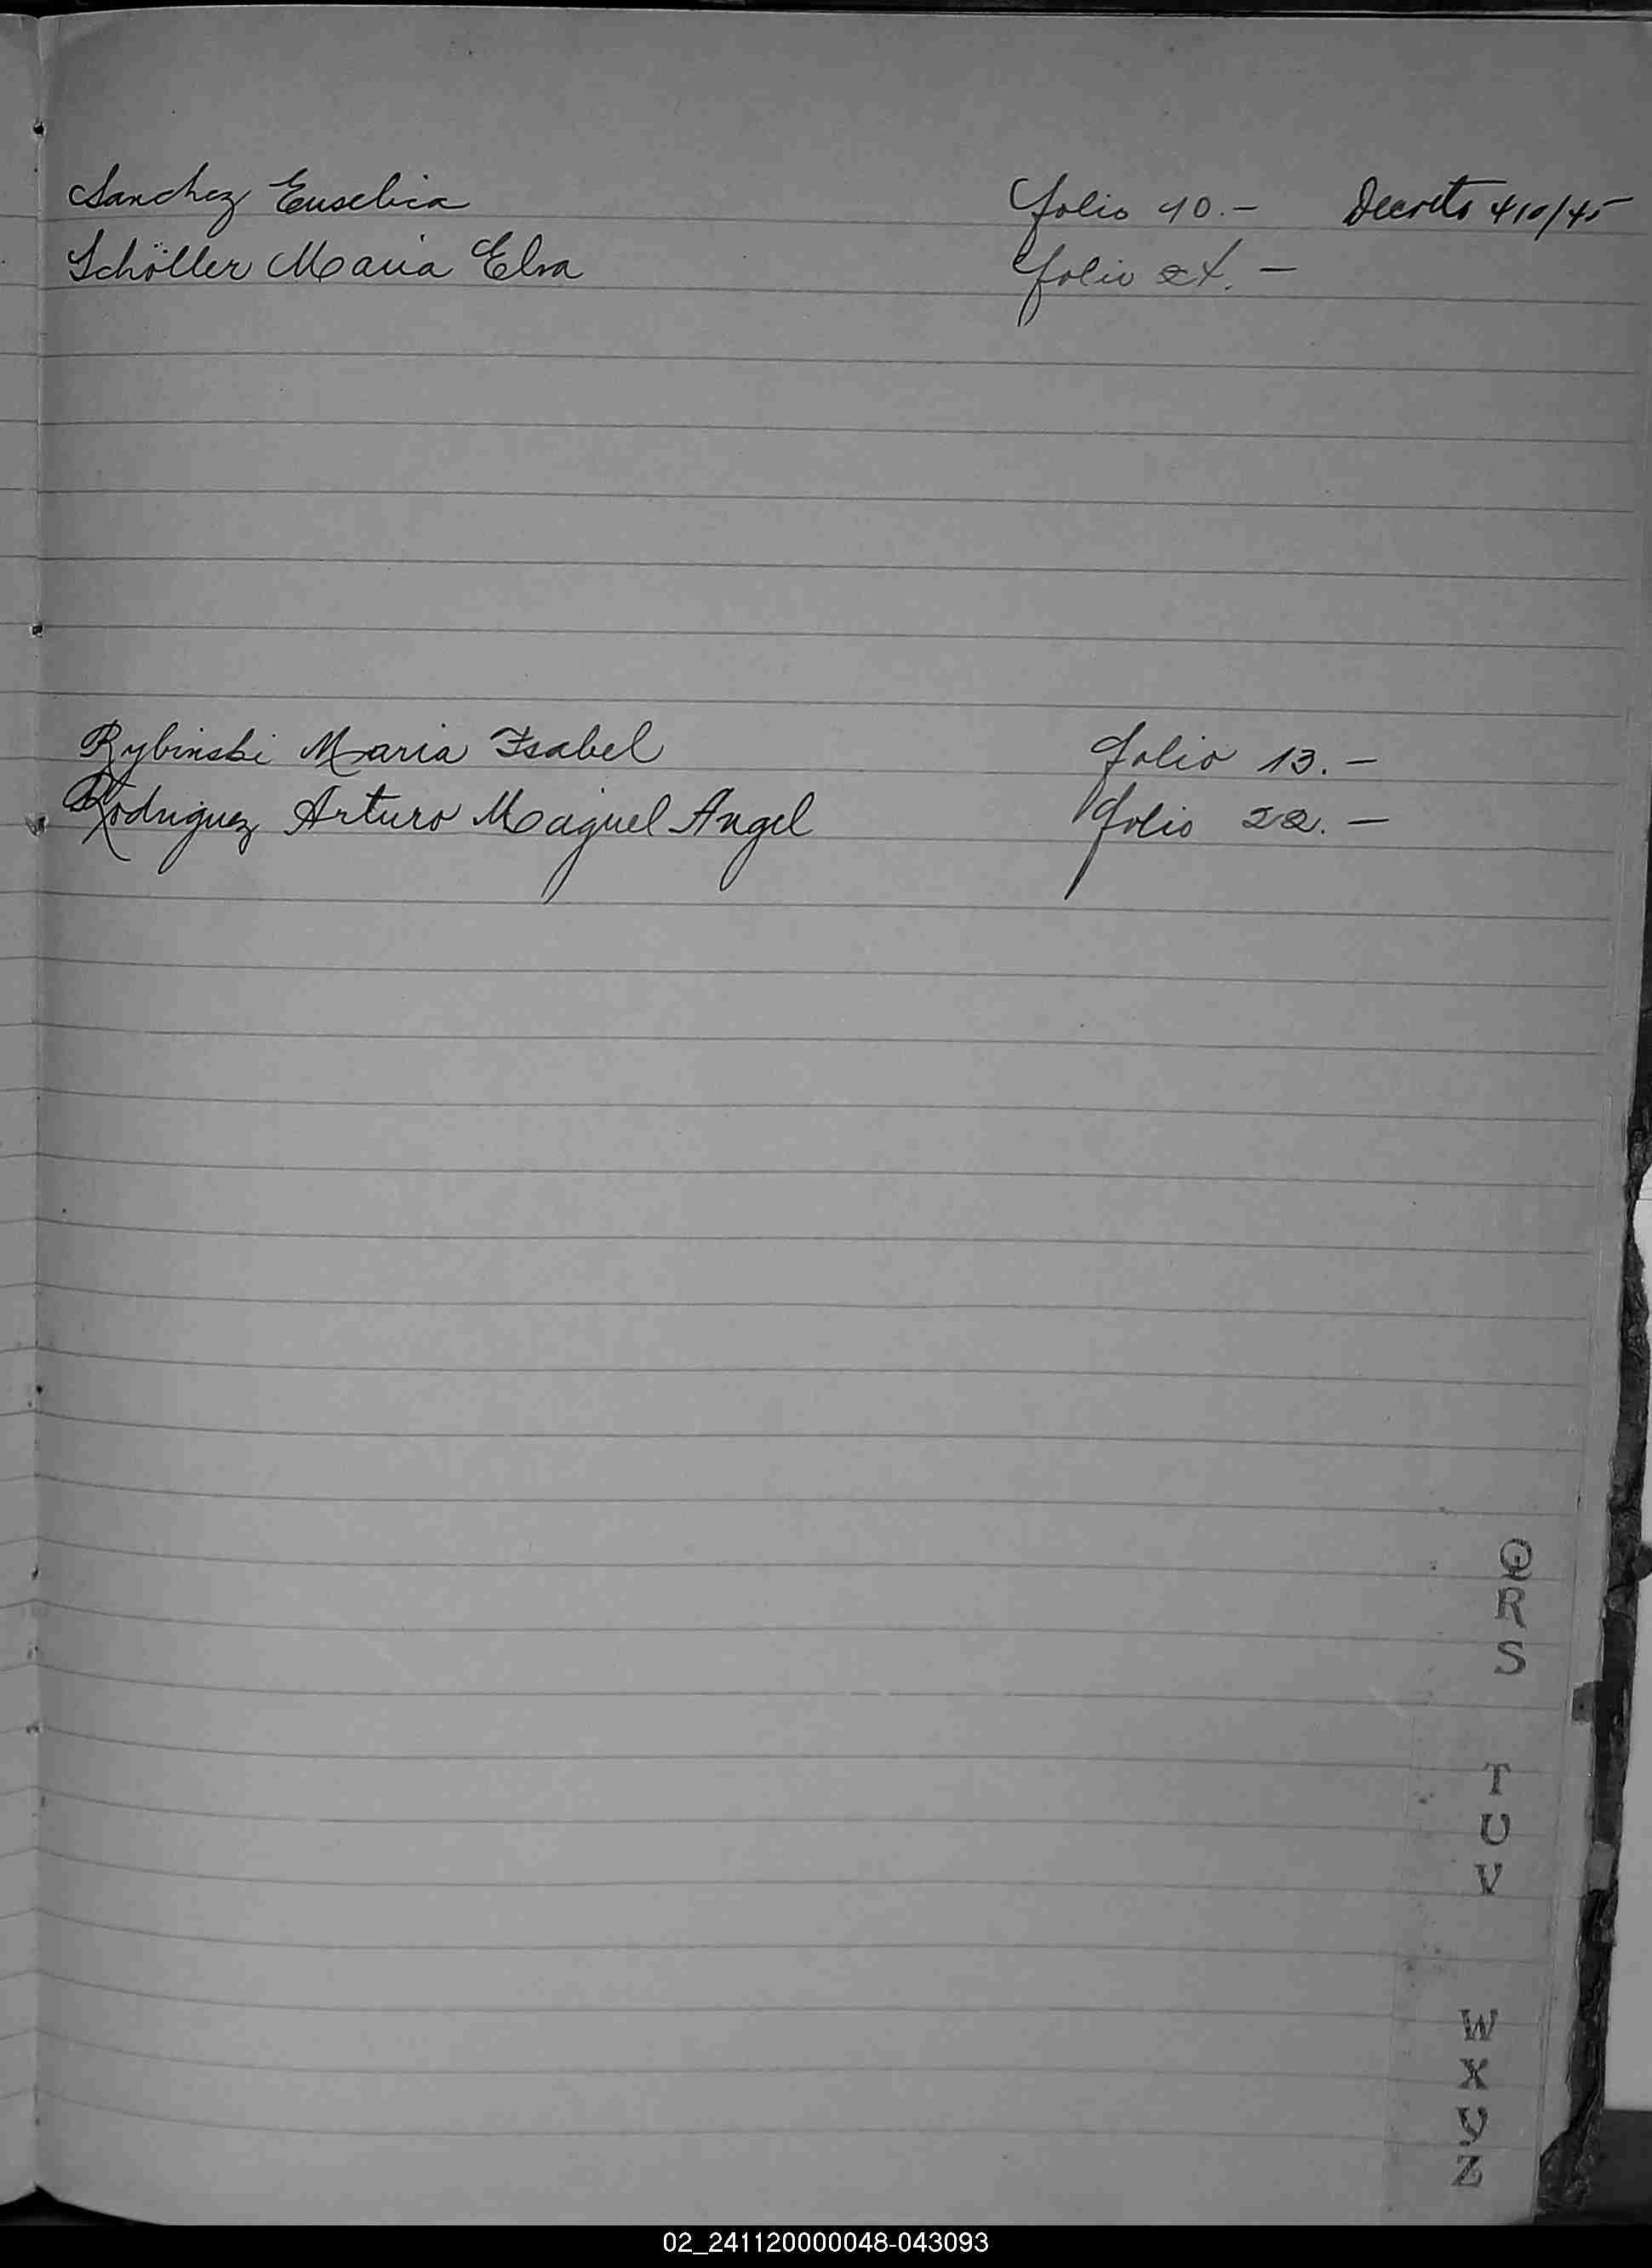 Sanchez Eusebia folio 10.- Decreto 410/45
Schöller Maria Elsa folio 21.-
Rybinski Maria Isabel folio 13.-
Rodriguez Arturo Maguel Angel folio 22.-
Q
R
S
T
U
V
W
X
Y
Z
02_241120000048-043093